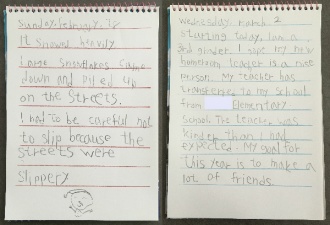 Sunday, February, 27
It snowed heavily
Large snowflakes came
down and piled up
on the streets.
I had to be careful not
to slip because the
streets were
slippery
Wednesday, march 2
starting today, I am a
3rd grader. I my new
homeroom teacher is a nice
person. My teacher has
transferred to my school
from Elementary
School. The teacher was
kinder than I had
expected. My goal for
this year is to make a
lot of friends.